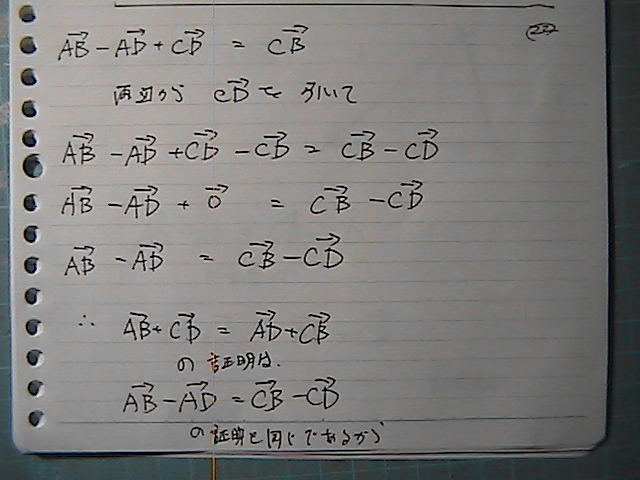 (22)
→AB − →AD + →CD = →CB
両辺から →CDを 引いて
→AB − →AD + →CD − →CD = →CB − →CD
→AB − →AD + →0 = →CB − →CD
→AB − →AD = →CB − →CD
∴ →AB + →CD = →AD + →CB
の証明は.
→AB − →AD = →CB − →CD
の証明と同じであるから